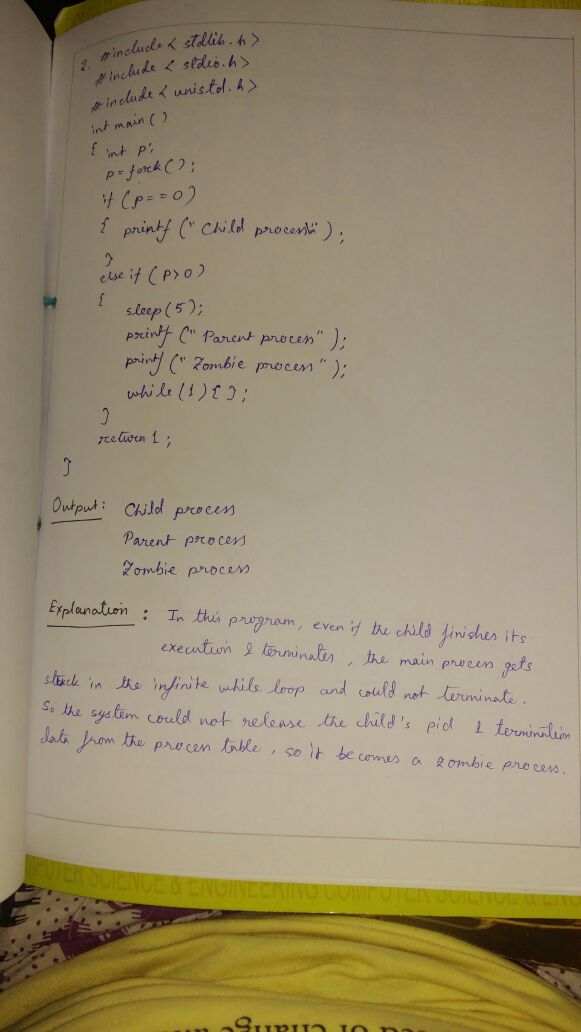 2. #include < stdlib.h >
#include < stdio.h >
#include < unistd.h >
int main ( )
{ int p;
p = fork ( ) ;
if ( p = = 0 )
{ printf (" Child process\n" ) ;
}
else if ( p > 0 )
{
sleep (5) ;
printf (" Parent process" ) ;
printf (" Zombie process" ) ;
while (1) { } ;
}
return 1 ;
}
Output : Child process
Parent process
Zombie process
Explanation : In this program, even if the child finishes its
execution & terminates , the main process gets
stuck in the infinite while loop and could not terminate .
So the system could not release the child's pid & termination
data from the process table , so it becomes a zombie process.
COMPUTER SCIENCE & ENGINEERING COMPUTER SCIENCE & ENG